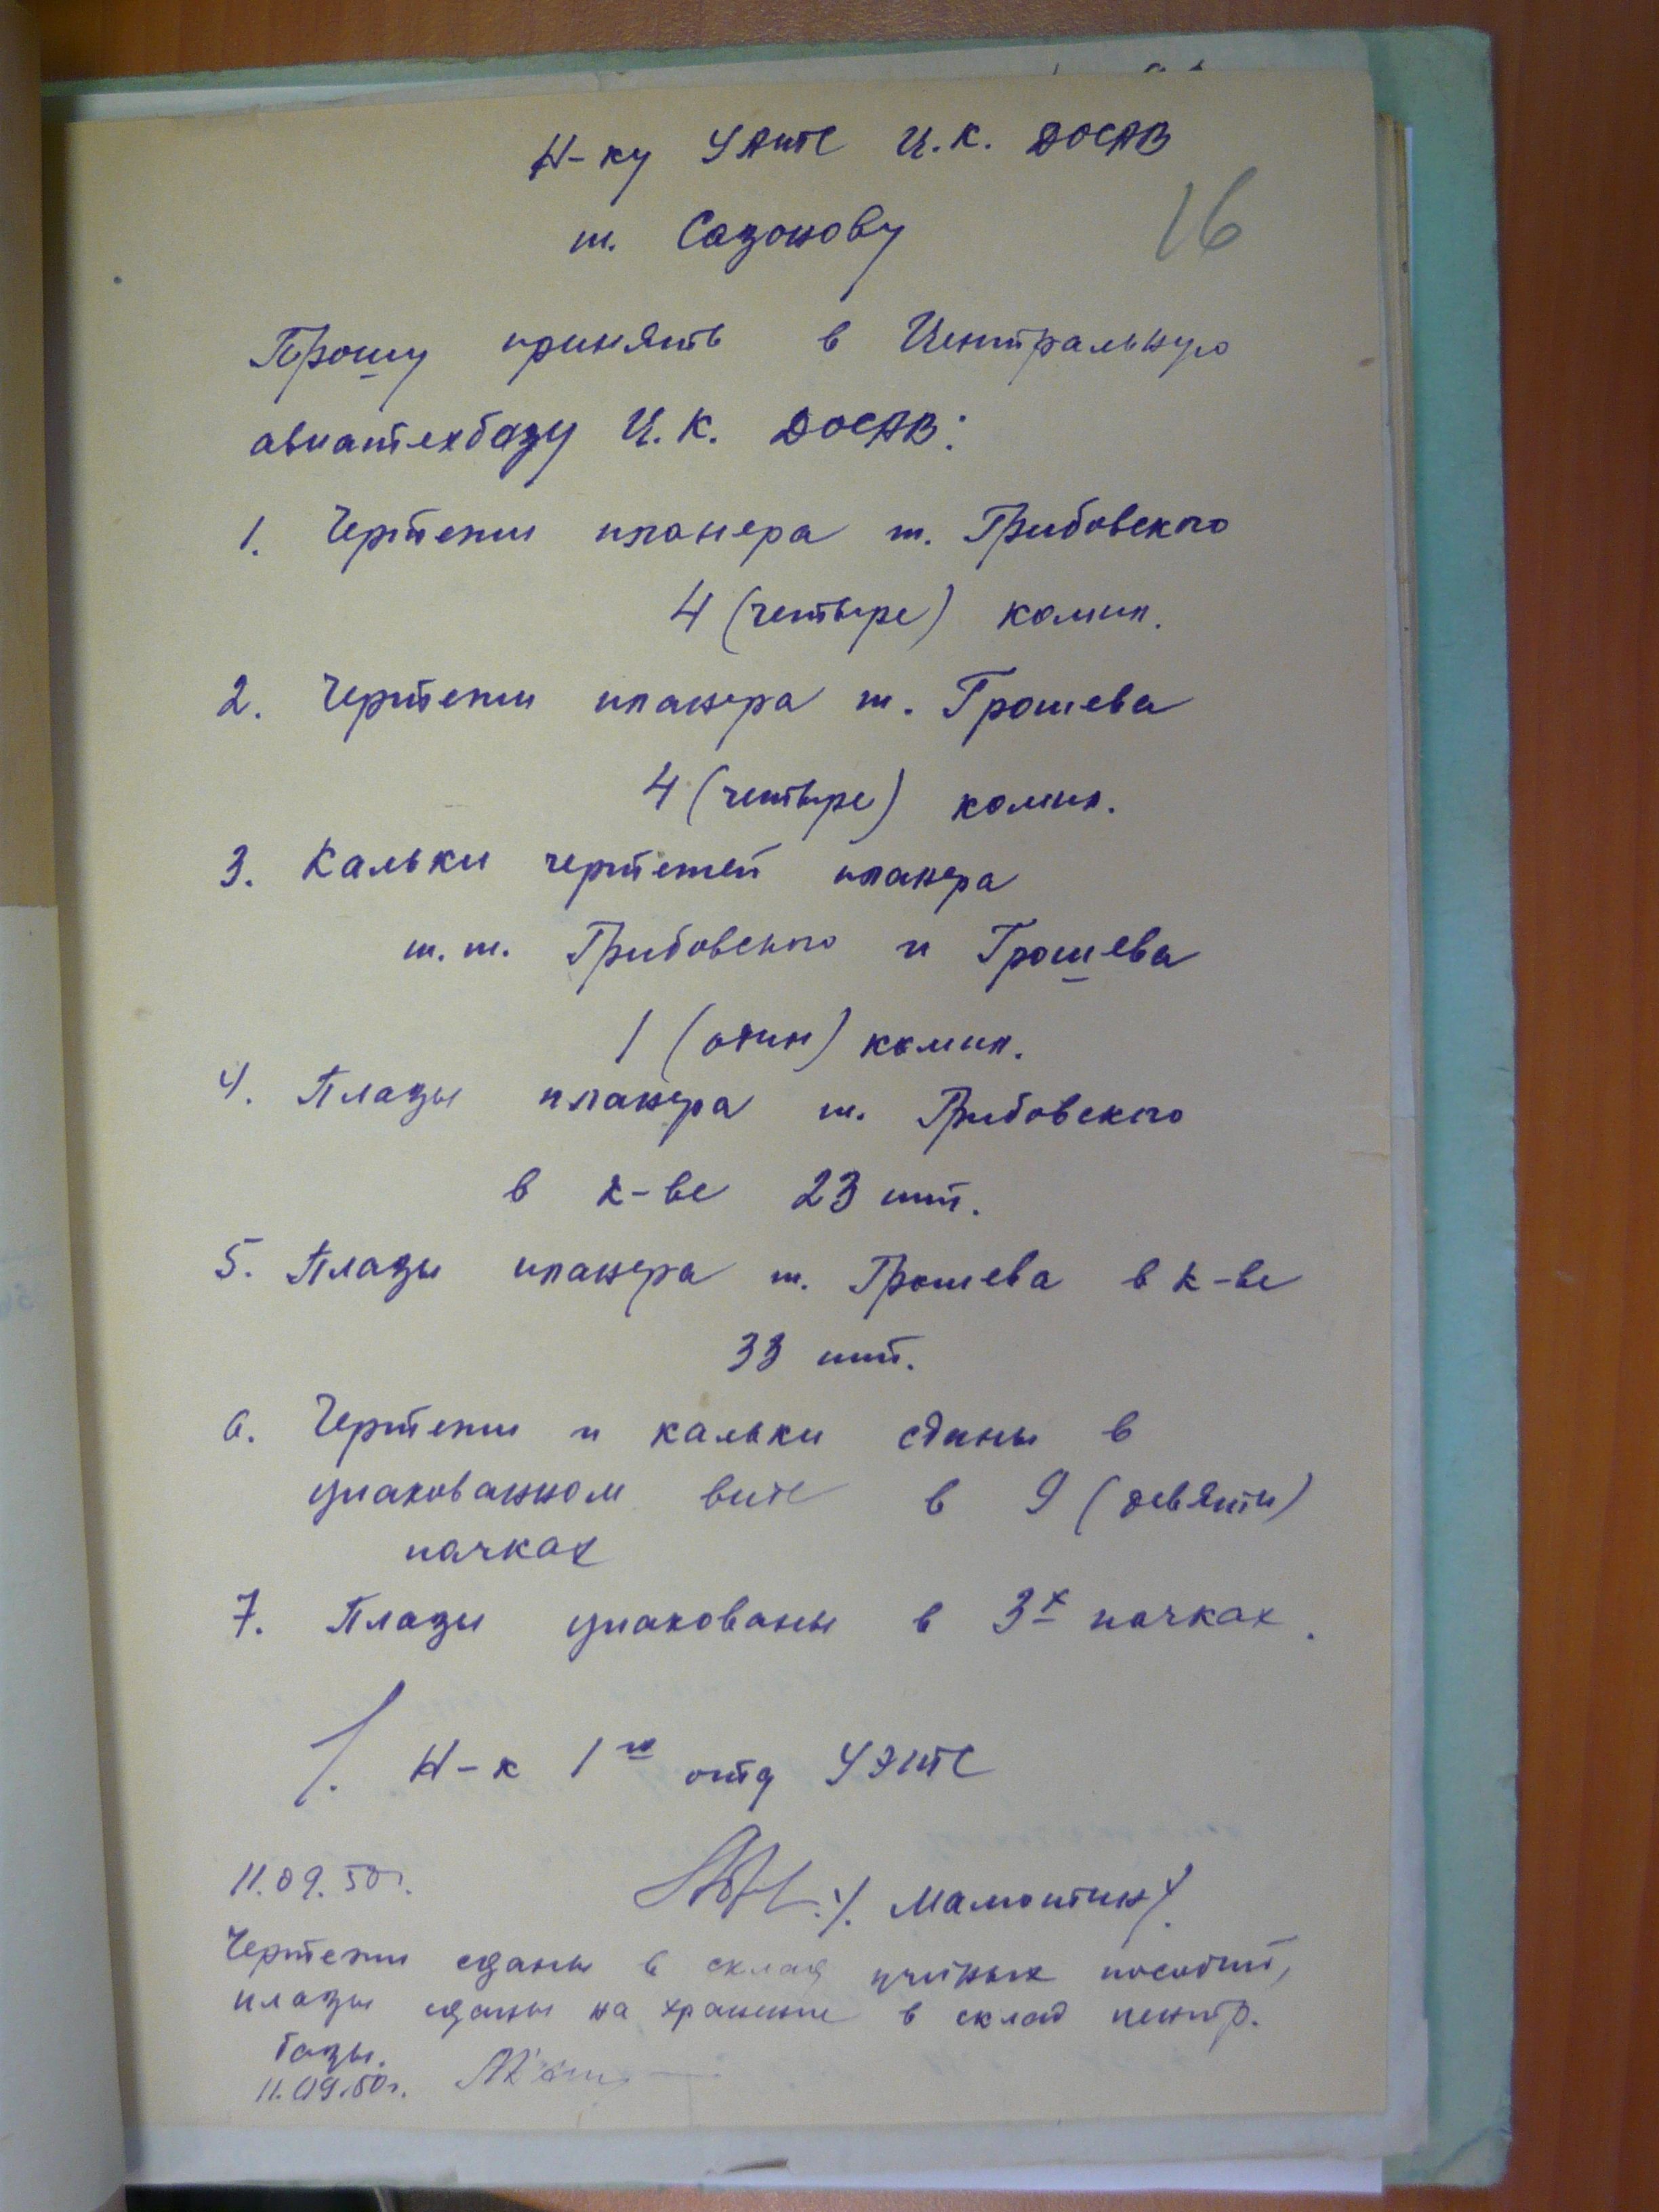 Н-ку УАИТС Ц.К. ДОСАВ
16
т. Сазонову
Прошу принять в Центральную
авиатехбазу Ц.К. ДОСАВ:
1. Чертежи планера т. Грибовского
4 (четыре) компл.
2. Чертежи планера т. Грошева
4 (четыре) компл.
3. Кальки чертежей планера
т.т. Грибовского и Грошева
1 (один) компл.
4. Плазы планера т. Грибовского
в к-ве 23 шт.
5. Плазы планера т. Грошева в к-ве
33 шт.
6. Чертежи и кальки сданы в
упакованном виде в 9 (девяти)
пачках
7. Плазы упакованы в 3х пачках.
Н-к 1го отд
11.09.50г.
/Мамонтин/.
Чертежи сданы в склад учебных пособий,
плазы сданы на хранение в склад центр.
базы.
11.09.50г.